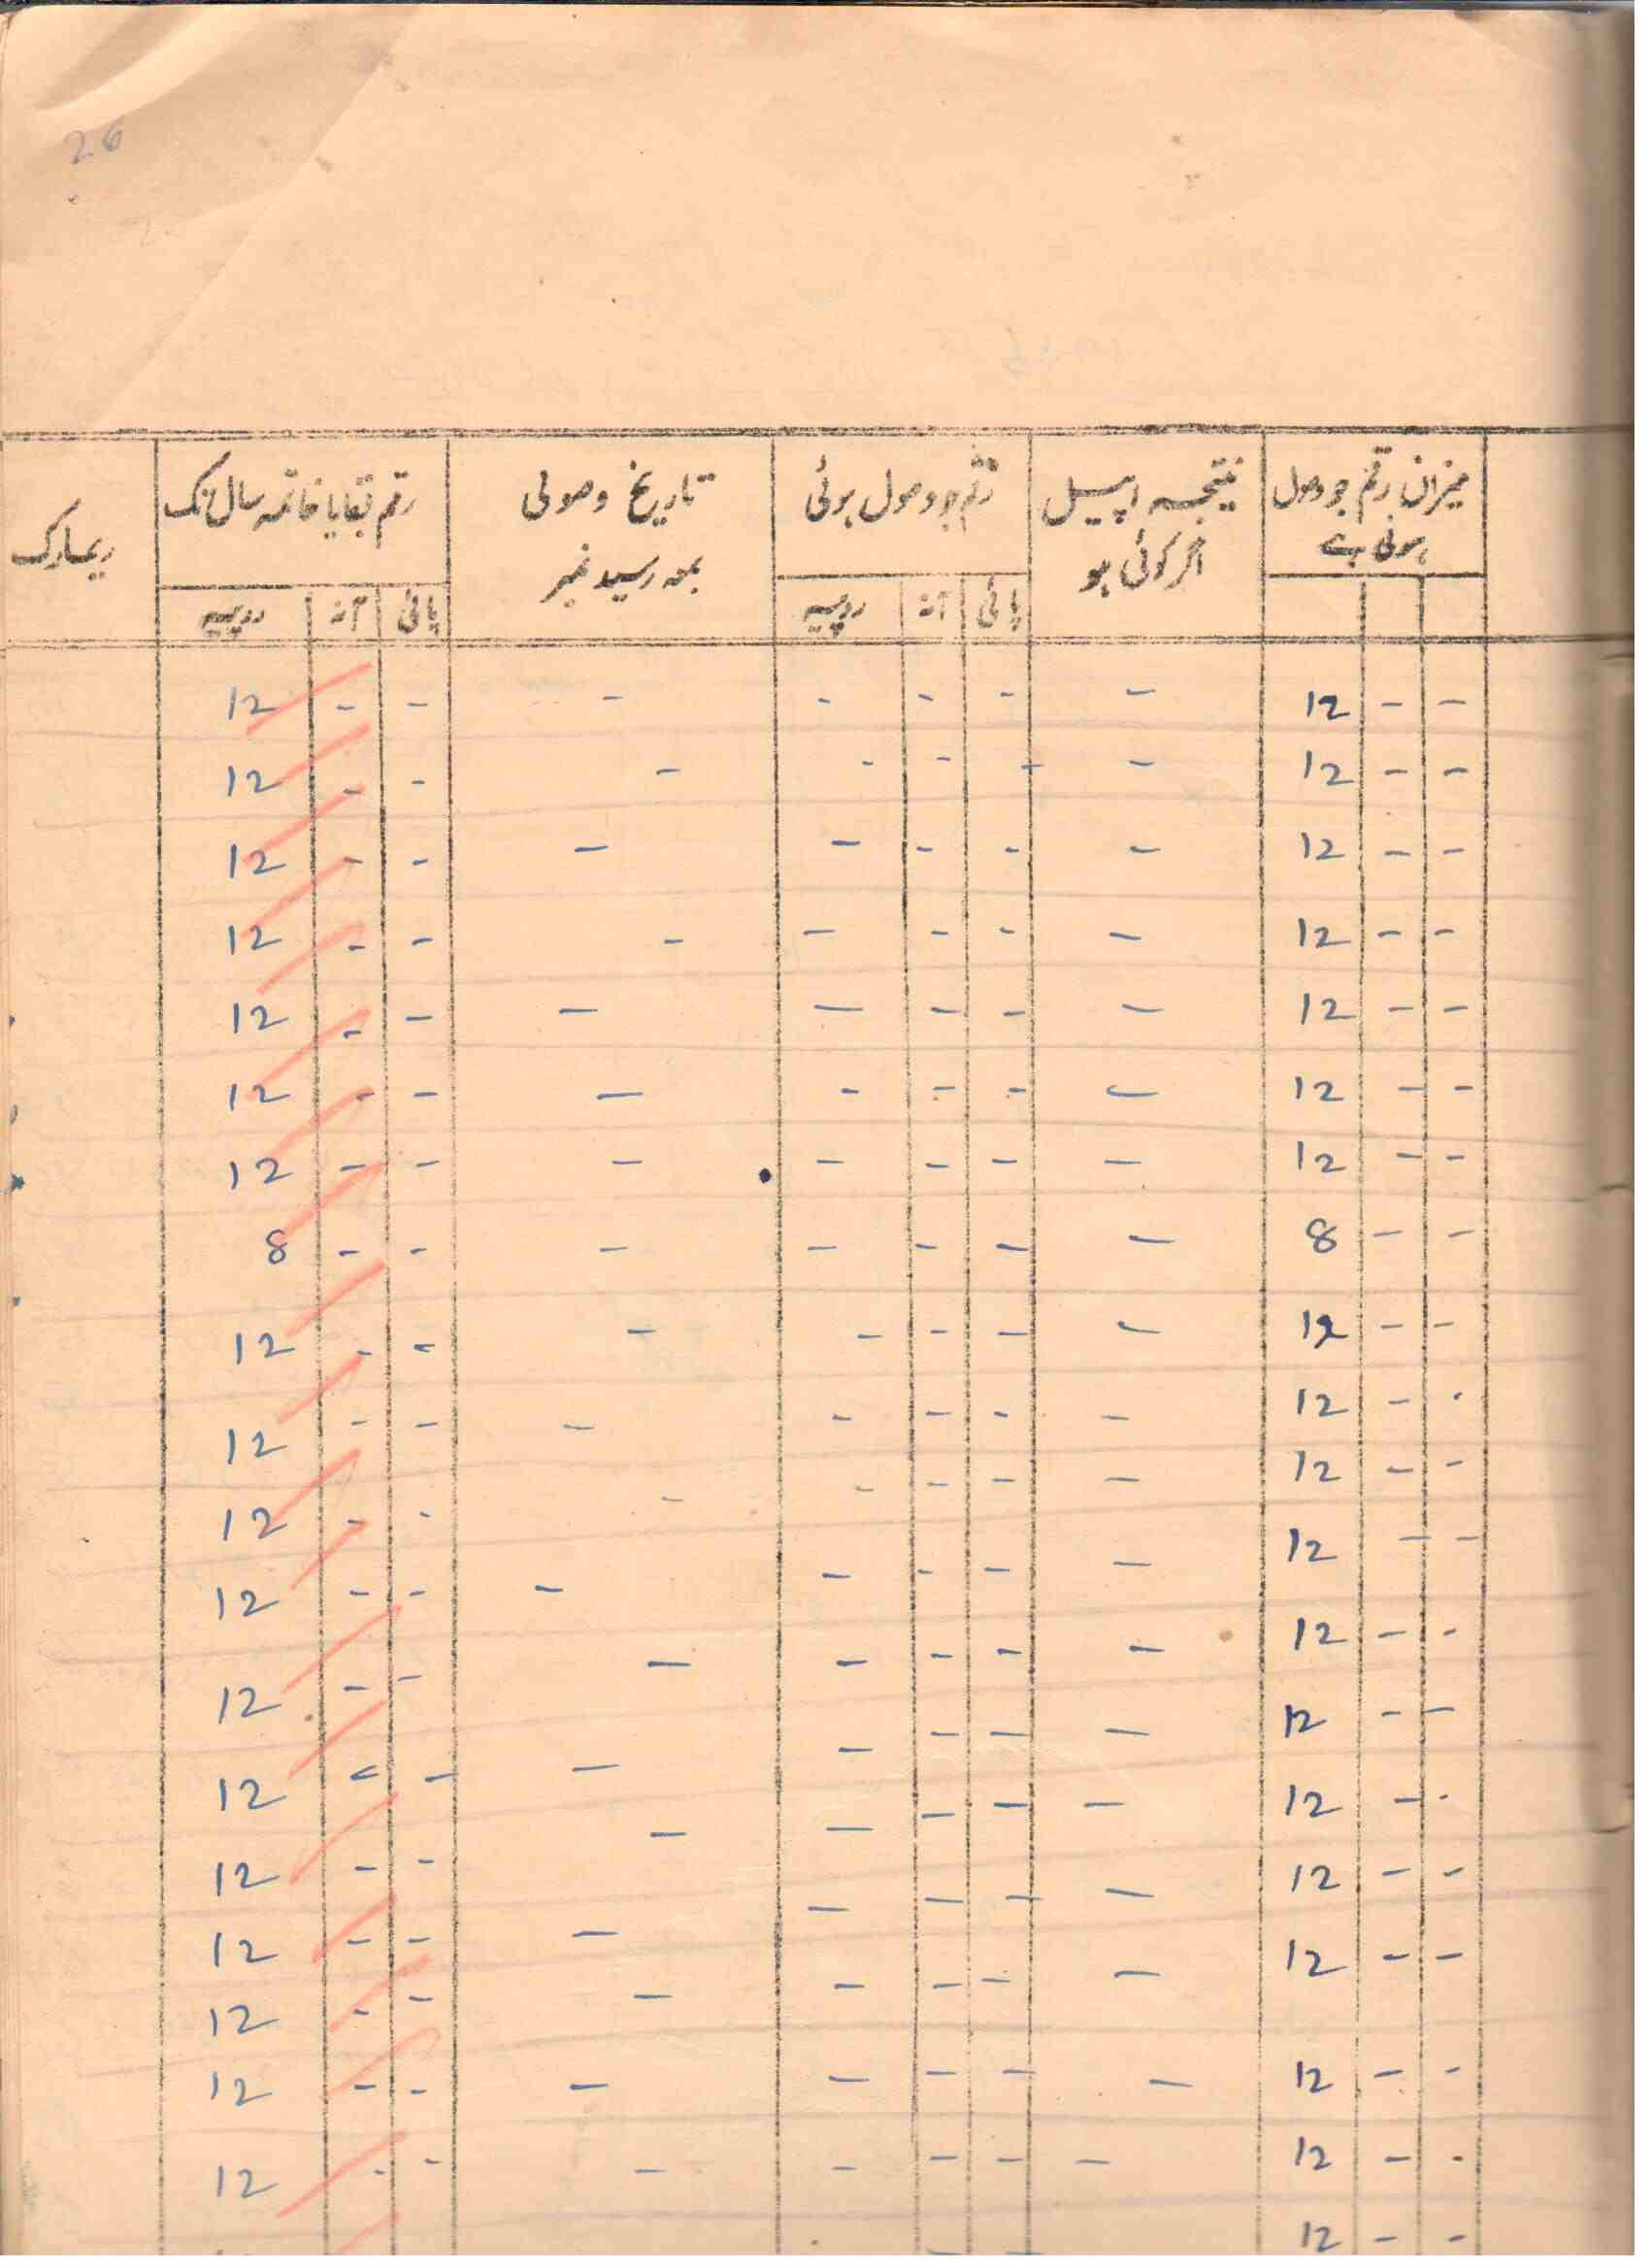 26
میزان رقم جو وصول ہوئی ہے | نتیجہ اپیل اگر کوئی ہو | رقم جو وصول ہوئی | تاریخ وصولی بمعہ رسید نمبر | رقم بقایا خاتمہ سال تک | ریمارک
پائی | آنہ | روپیہ | پائی | آنہ | روپیہ
12 - - | - | - - - | - | 12 - -
12 - - | - | - - - | - | 12 - -
12 - - | - | - - - | - | 12 - -
12 - - | - | - - - | - | 12 - -
12 - - | - | - - - | - | 12 - -
12 - - | - | - - - | - | 12 - -
12 - - | - | - - - | - | 12 - -
8 - - | - | - - - | - | 8 - -
12 - - | - | - - - | - | 12 - -
12 - - | - | - - - | - | 12 - -
12 - - | - | - - - | - | 12 - -
12 - - | - | - - - | - | 12 - -
12 - - | - | - - - | - | 12 - -
12 - - | - | - - - | - | 12 - -
12 - - | - | - - - | - | 12 - -
12 - - | - | - - - | - | 12 - -
12 - - | - | - - - | - | 12 - -
12 - - | - | - - - | - | 12 - -
12 - - | - | - - - | - | 12 - -
12 - -